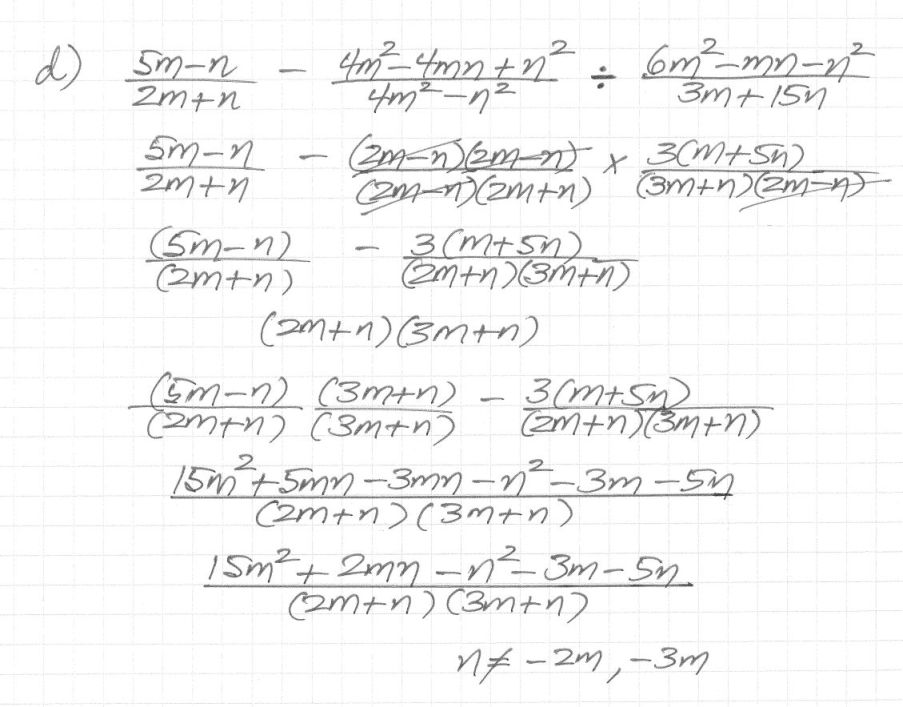 d) (5m-n)/(2m+n) - (4m²-4mn+n²)/(4m²-n²) ÷ (6m²-mn-n²)/(3m+15n)
(5m-n)/(2m+n) - ((2m-n)(2m-n))/((2m-n)(2m+n)) × (3(m+5n))/((3m+n)(2m-n))
(5m-n)/(2m+n) - (3(m+5n))/((2m+n)(3m+n))
(2m+n)(3m+n)
(5m-n)/(2m+n) (3m+n)/(3m+n) - (3(m+5n))/((2m+n)(3m+n))
(15m²+5mn-3mn-n²-3m-5n)/((2m+n)(3m+n))
(15m²+2mn-n²-3m-5n)/((2m+n)(3m+n))
n≠ -2m, -3m